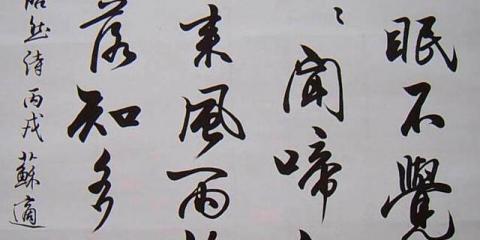 眠不覺
聞啼
来風雨
落知多
然詩丙戌蘇適